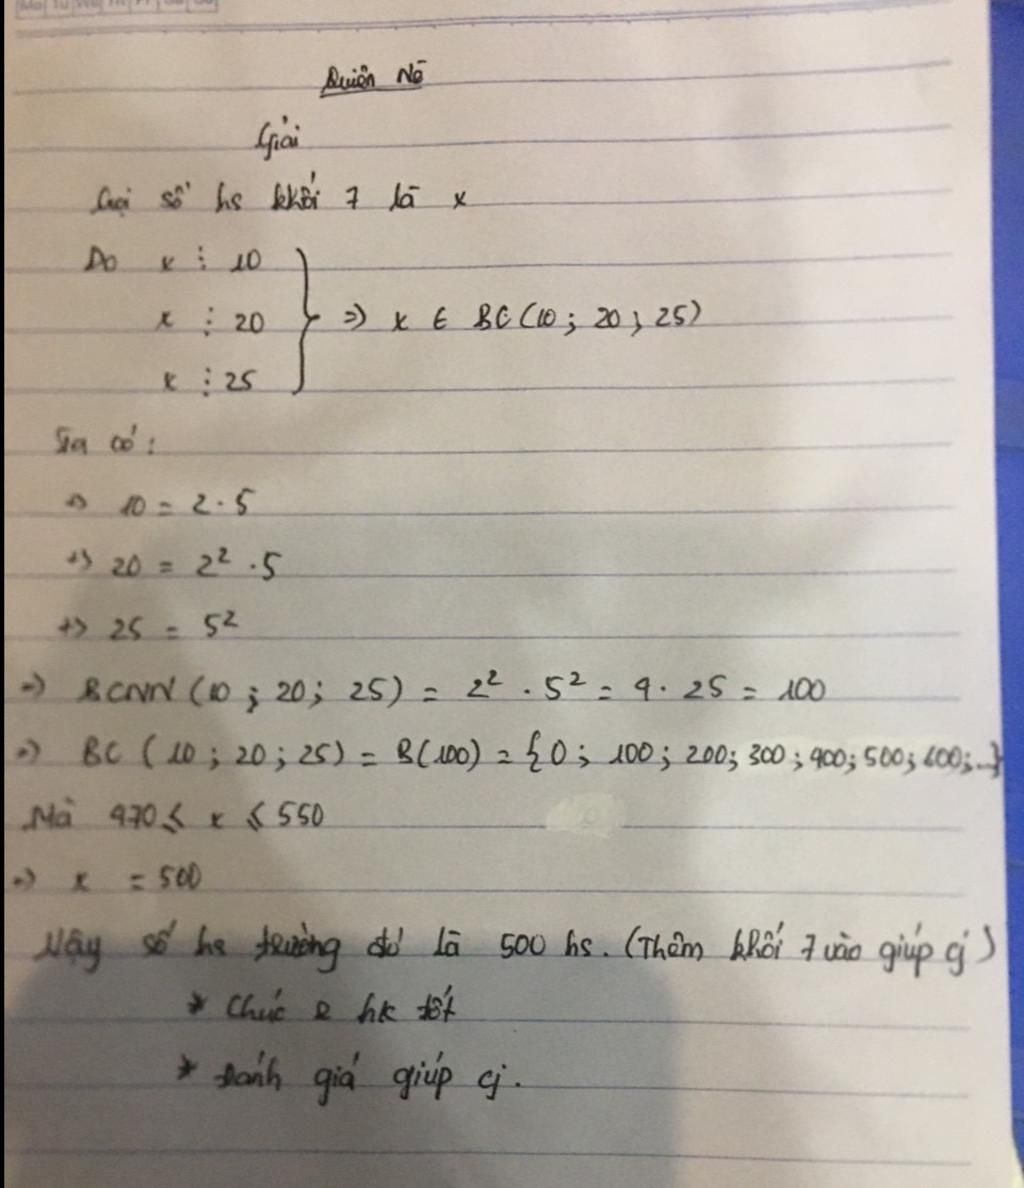 Mo Tu We Th Fr Sa Su
Quiên Nô
Giải
Gọi số hs khối 7 là x
Do x ⋮ 10
x ⋮ 20
x ⋮ 25
} => x ∈ BC (10 ; 20 ; 25)
Ta có :
+> 10 = 2 . 5
+> 20 = 2² . 5
+> 25 = 5²
=> BCNN (10 ; 20 ; 25) = 2² . 5² = 4 . 25 = 100
=> BC (10 ; 20 ; 25) = B(100) = {0 ; 100 ; 200; 300 ; 400; 500; 600; ...}
Mà 470 ≤ x ≤ 550
=> x = 500
Vậy số hs trường đó là 500 hs. (Thêm khối 7 vào giúp cj)
* Chúc e hk tốt
* Đánh giá giúp cj.